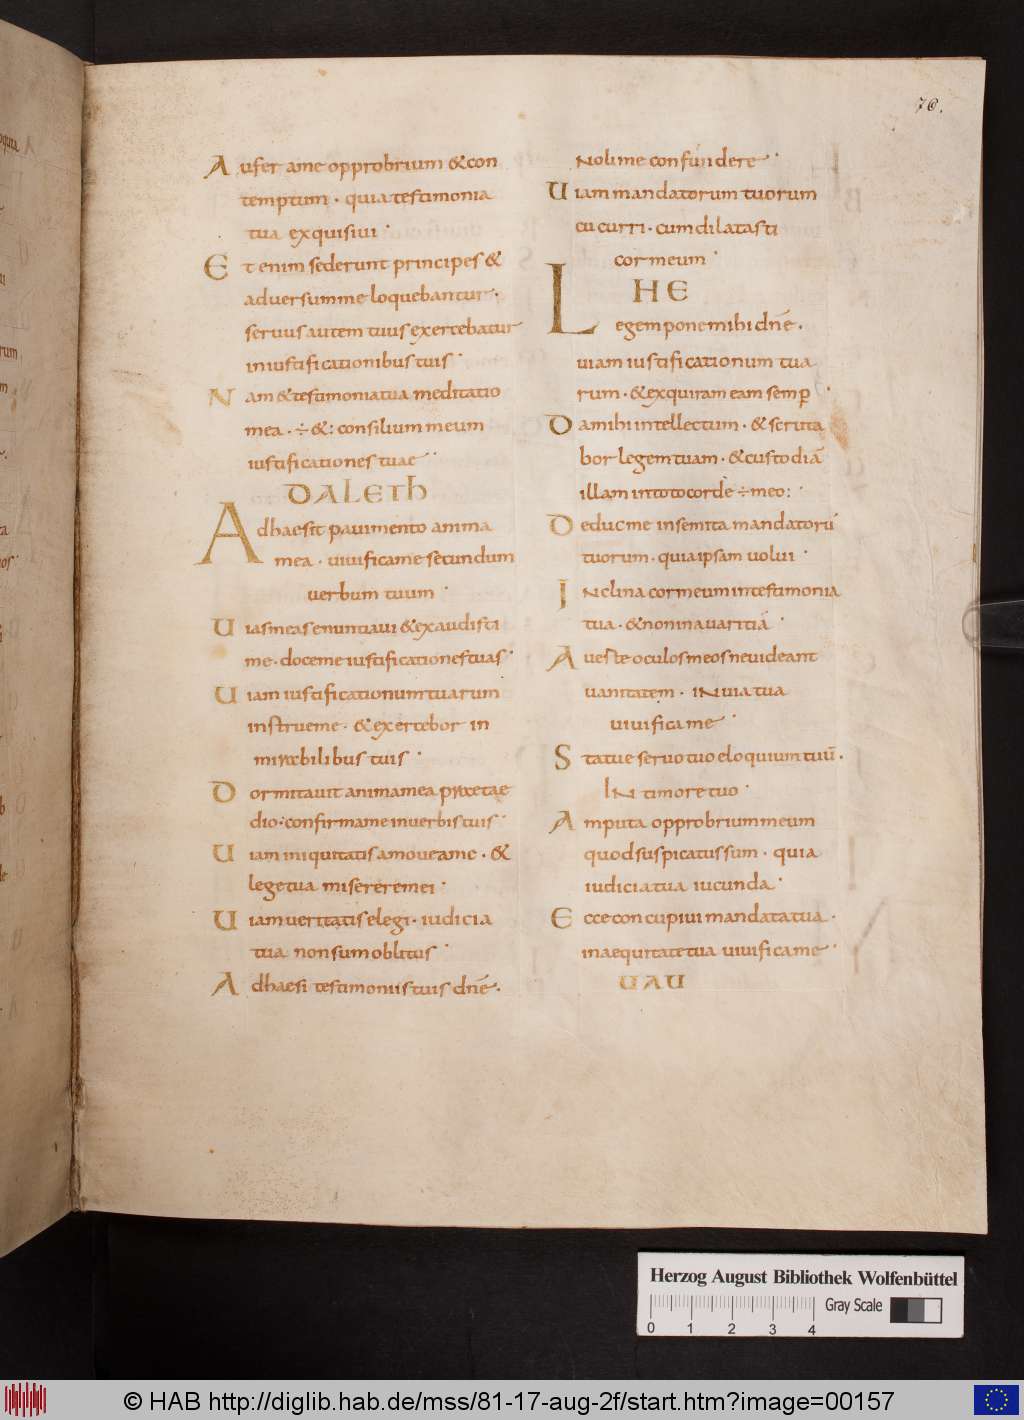 76.
Aufer ame opprobrium &con
temptum · quia testimonia
tua exquisiui ·
Et enim sederunt principes &
aduersum me loquebantur ·
seruus autem tuus exercebatur
in iustificationibus tuis ·
Nam & testimonia tua meditatio
mea · ÷ &: consilium meum
iustificationes tuae ·
DALETH
Adhaesit pauimento anima
mea · uiuifica me secundum
uerbum tuum ·
Uias meas enuntiaui & exaudisti
me · doce me iustificationes tuas ·
Uiam iustificationum tuarum
instrue me · & exercebor in
mirabilibus tuis ·
Dormitauit anima mea prae tae
dio : confirma me in uerbis tuis ·
Uiam iniquitatis amoue ame · &
lege tua miserere mei ·
Uiam ueritatis elegi · iudicia
tua non sum oblitus ·
Adhaesi testimoniis tuis dñe ·
Noli me confundere ·
Uiam mandatorum tuorum
cucurri · cum dilatasti
cor meum ·
HE
Legem pone mihi dñe ·
uiam iustificationum tua
rum · & exquiram eam semp̱ ·
Da mihi intellectum · & scruta
bor legem tuam · & custodiā
illam in toto corde ÷ meo : ·
Deduc me in semita mandatorū
tuorum · quia ipsam uolui ·
Inclina cor meum in testimonia
tua · & non in auaritiā ·
Auerte oculos meos ne uideant
uanitatem · iN uia tua
uiuifica me ·
Statue seruo tuo eloquium tuū ·
IN timore tuo ·
Amputa opprobrium meum
quod suspicatus sum · quia
iudicia tua iucunda ·
Ecce concupiui mandata tua ·
in aequitate tua uiuifica me ·
UAU
Herzog August Bibliothek Wolfenbüttel
Gray Scale
0 1 2 3 4
© HAB http://diglib.hab.de/mss/81-17-aug-2f/start.htm?image=00157